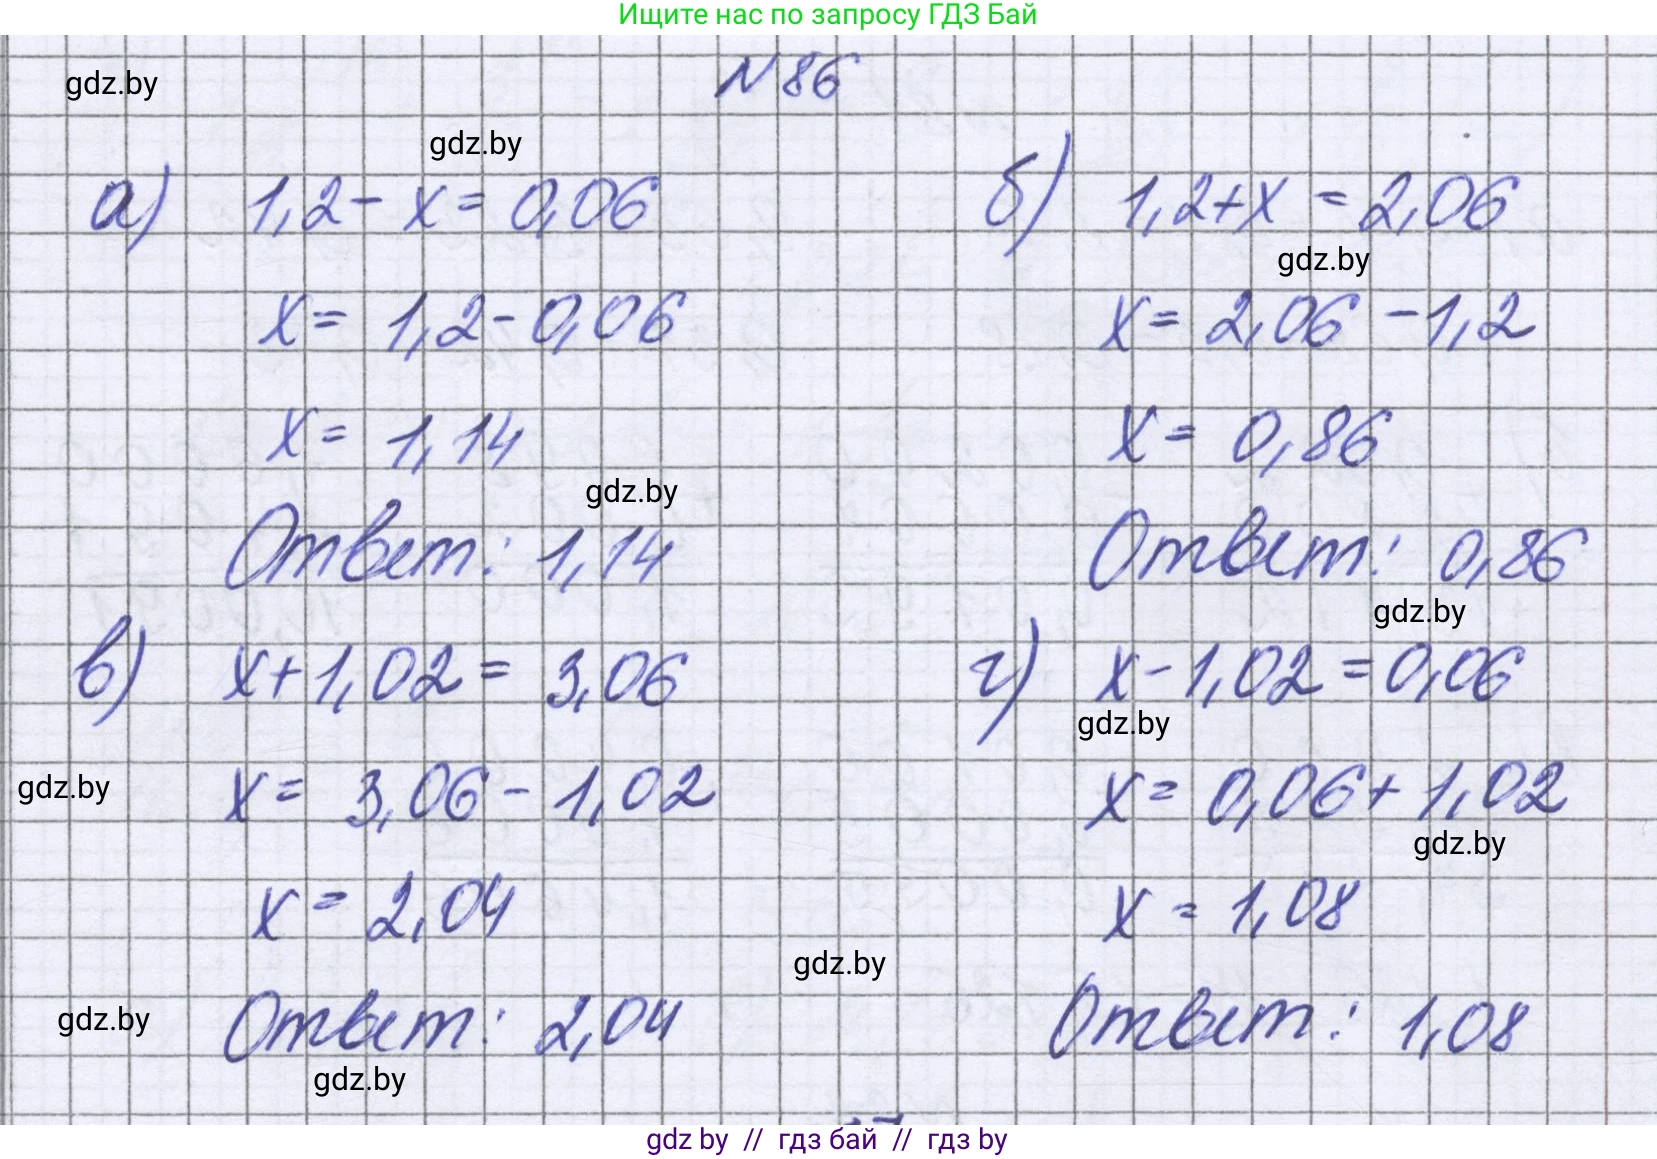 Ищите нас по запросу ГДЗ Бай
N 86
gdz.by
gdz.by
а) 1,2 - x = 0,06
x = 1,2 - 0,06
x = 1,14
gdz.by
Ответ: 1,14
б) 1,2 + x = 2,06
gdz.by
x = 2,06 - 1,2
x = 0,86
Ответ: 0,86
gdz.by
в) x + 1,02 = 3,06
gdz.by
x = 3,06 - 1,02
x = 2,04
gdz.by
Ответ: 2,04
gdz.by
г) x - 1,02 = 0,06
gdz.by
x = 0,06 + 1,02
gdz.by
x = 1,08
gdz.by
Ответ: 1,08
gdz by // гдз бай // гдз by